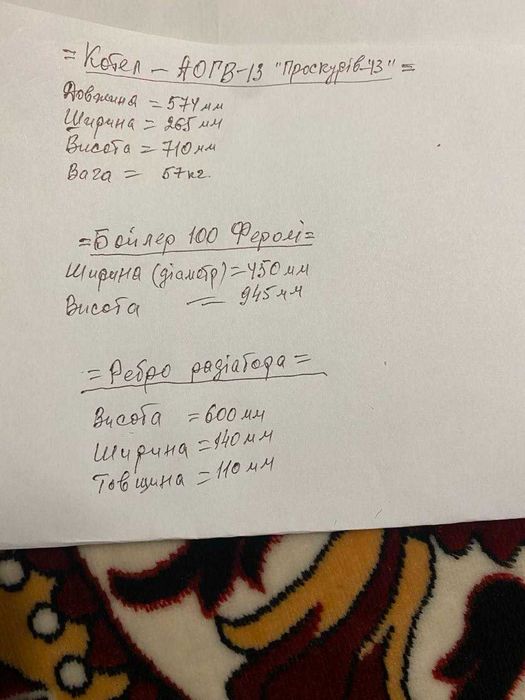 = Котел – АОГВ-13 "Проскурів-13" =
Довжина = 574мм
Ширина = 265мм
Висота = 710мм
Вага = 57кг.
= Бойлер 100 Феролі =
Ширина (діаметр) = 450мм
Висота = 945мм
= Ребро радіатора =
Висота = 600мм
Ширина = 140мм
Товщина = 110мм